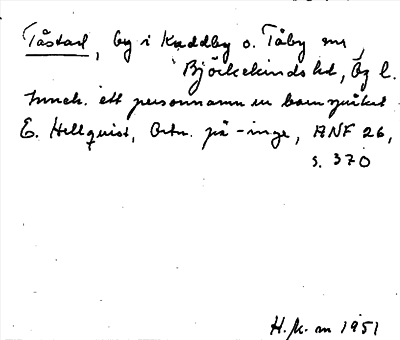 Tåstad, by i Kuddby o. Tåby snr,
Björkekinds hd, Ög l.
Inneh. ett personnamn
E. Hellquist, Ortn. på -inge, ANF 26,
s. 370
H. K. m 1951